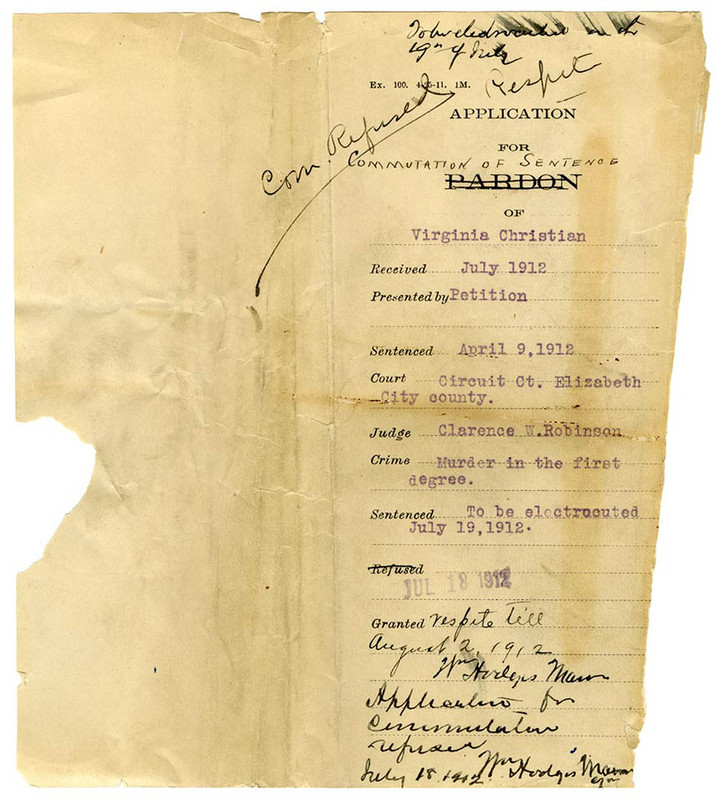 To be electrocuted
19th of July
Respite
Com. Refused
Ex. 100. 4-25-11. 1M.
APPLICATION
FOR
COMMUTATION OF SENTENCE
PARDON
OF
Virginia Christian
Received July 1912
Presented by Petition
Sentenced April 9,1912
Court Circuit Ct. Elizabeth
City county.
Judge Clarence W.Robinson
Crime Murder in the first
degree.
Sentenced To be electrocuted
July 19,1912.
Refused
JUL 18 1912
Granted respite till
August 2, 1912
Wm Hodges Mann
Application for
Commutation
refused
July 18 1912 Wm Hodges Mann